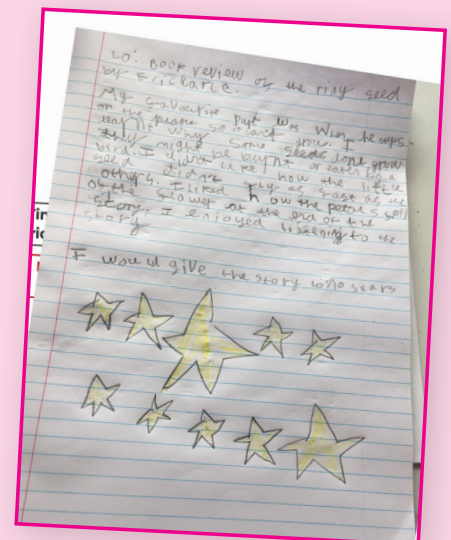 LO: Book review of the tiny seed
by Eric Carle.
My favourite part was When he steps
on the
why some seeds dont grow
might be burnt or eaten by a
bird. I didn't like how the little
seed didnt fly as fast as the
others. I liked how the petals fell
of the flower at the end of the
story. I enjoyed listening to the
story
I would give the story 10/10 stars
in
ri